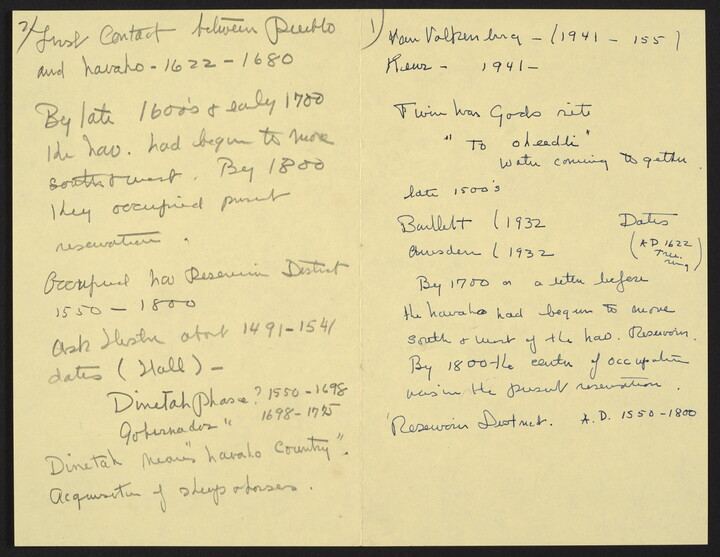 1)
Van Valkenburg - (1941 - 155)
- 1941 -
Twin War Gods rite
" To oheedli "
Water coming together
late 1500's
Bartlett (1932
Amsden (1932
Dates
(A.D. 1622
Tree
ring)
By 1700 or a little before
the Navaho had begun to move
south & west of the Nav. Reservoir.
By 1800 the center of occupation
was in the present reservation.
Reservoir District. A.D. 1550-1800
2)
First Contact between Pueblo
and Navaho - 1622 - 1680
By late 1600's & early 1700
the Nav. had begun to move
south & west. By 1800
they occupied present
reservation.
Occupied Nav Reservoir District
1550 - 1800
Ask about 1491-1541
dates (Hall) -
Dinetah phase? 1550-1698
Gobernador " 1698-1775
Dinetah means "Navaho Country".
Acquisition of sheep & horses.